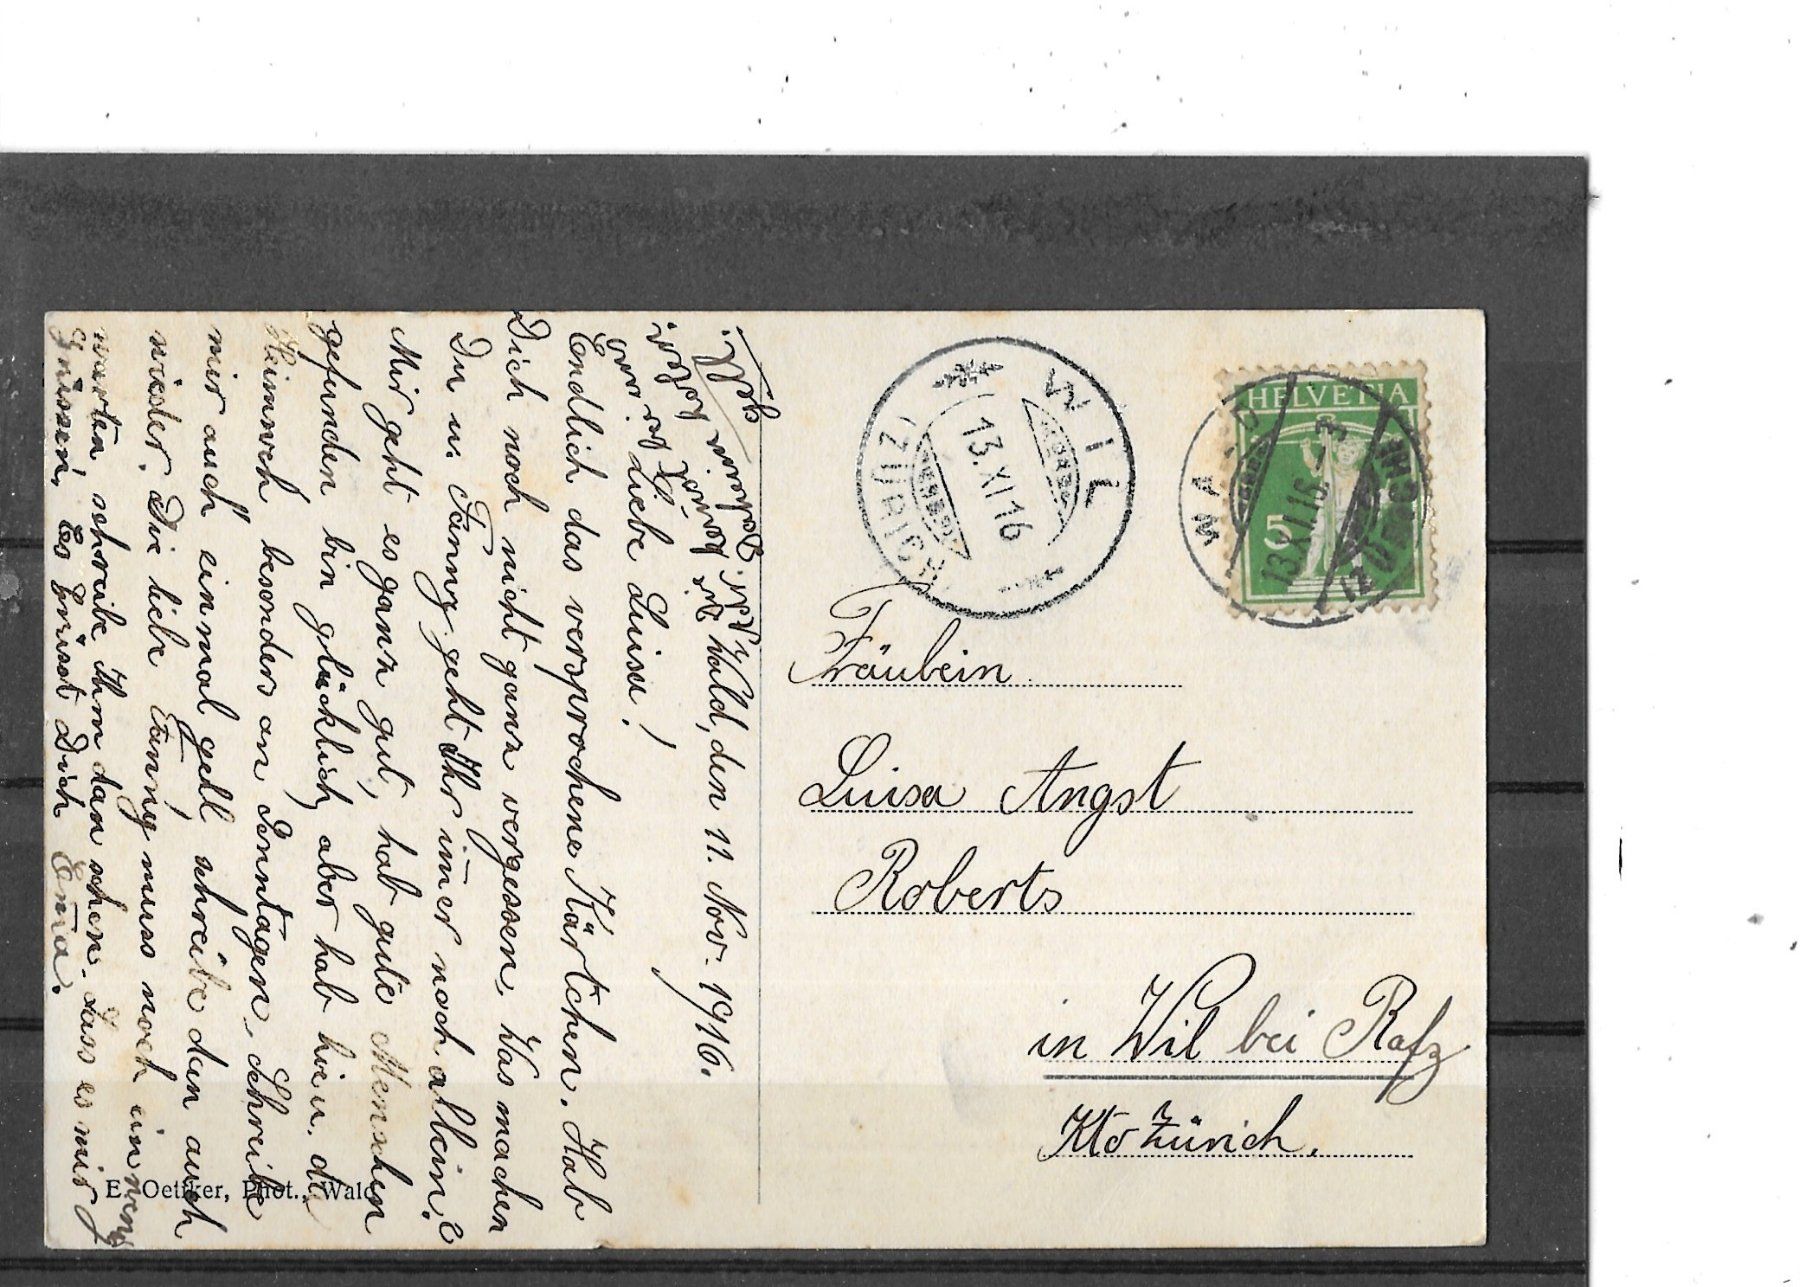 HELVETIA
5
WALD
(ZÜRICH)
13.XI.16.-3
WIL
(ZÜRICH)
13.XI.16
Fräulein
Luisa Angst
Roberts
in Wil bei Rafz
Kto Zürich.
Wald, den 11. Nov. 1916.
Liebe Luisa!
Endlich das versprochene Kärtchen. Hab
Dich noch nicht ganz vergessen, Was machen
Du u. Fanny geht Ihr immer noch allein?
Mir geht es ganz gut, hab gute Menschen
gefunden bin glücklich, aber hab hie u. da
Heimweh besonders an Sonntagen. Schreibe
mir auch einmal gell, schreibe dan auch
wieder. Die liebe Fanny muss noch ein wenig
warten, schreibe Ihm dan schon. Lass es mir
grüssen, Es grüsst Dich Emma.
E. Oetiker, Phot., Wald